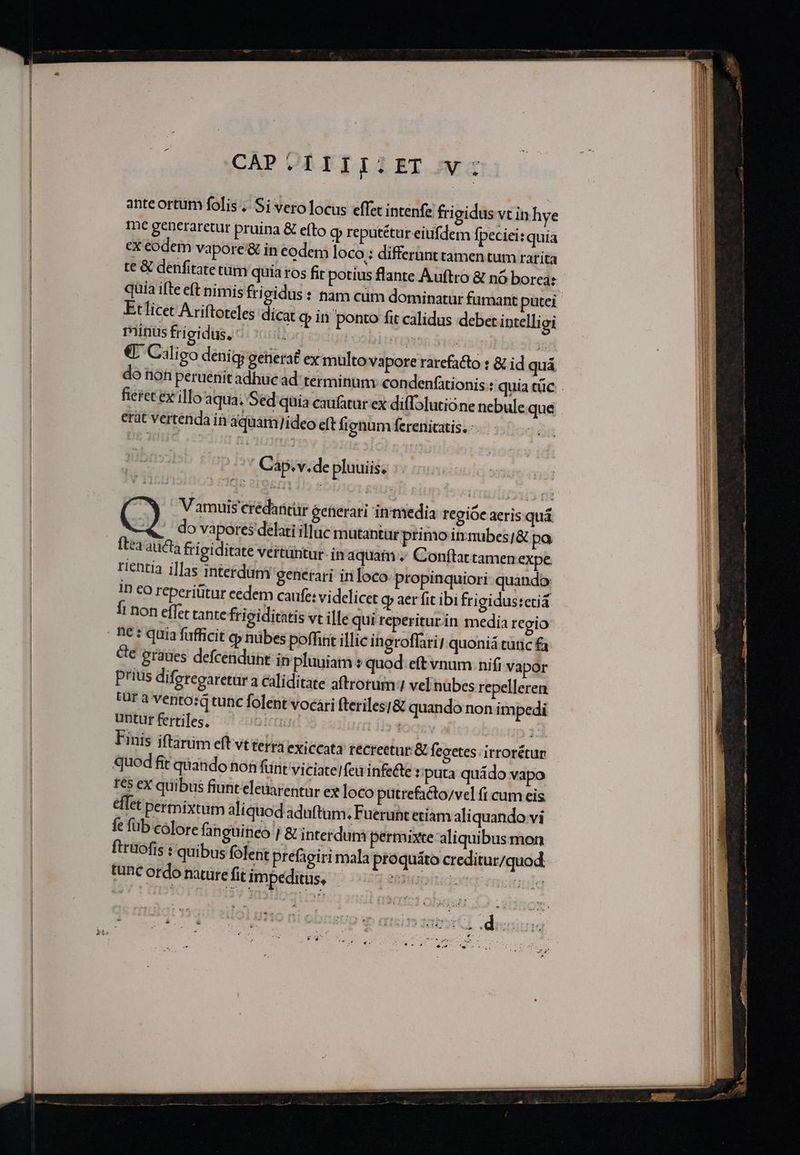 CAP . IIII. ET .V.
ante ortum ſolis. Si vero locus eſſet intenſe frigidus vt in hye
me generaretur pruina & eſto ꝙ reputẽtur eiuſdem ſpeciei: quia
ex eodem vapore & in eodem loco: differunt tamen tum rarita
te & denſitate tum quia ros fit potius flante Auſtro & nõ borea:
quia iſte eſt nimis frigidus: nam cum dominatur fumant putei
Et licet Ariſtoteles dicat ꝙ in ponto fit calidus debet intelligi
minus frigidus.
¶ Caligo deniqꝫ generat᷑ ex multo vapore rarefacto: & id quã
do non peruenit adhuc ad terminum condenſationis: quia tũc
fieret ex illo aqua. Sed quia cauſatur ex diſſolutione nebule que
erat vertenda in aquam/ideo eſt ſignum ſerenitatis.
Cap.v.de pluuiis.
QVamuis credantur generari in media regiõe aeris quã
do vapores delati illuc mutantur primo in nubes/& po
ſtea aucta frigiditate vertuntur in aquam. Conſtat tamen expe
rientia illas interdum generari in loco propinquiori quando
in eo reperiũtur eedem cauſe: videlicet ꝙ aer fit ibi frigidus: etiã
ſi non eſſet tante frigiditatis vt ille qui reperitur in media regio
ne: quia ſufficit ꝙ nubes poſſint illic ingroſſari/ quoniã tunc fa
cte graues deſcendunt in pluuiam: quod eſt vnum niſi vapor
prius diſgregaretur a caliditate aſtrorum/ vel nubes repelleren
tur a vento: q̃ tunc ſolent vocari ſteriles/& quando non impedi
untur fertiles.
Finis iſtarum eſt vt terra exiccata recreetur & ſegetes irrorẽtur
quod fit quando non ſunt viciate/ſeu infecte: puta quãdo vapo
res ex quibus fiunt eleuarentur ex loco putrefacto/vel ſi cum eis
eſſet permixtum aliquod aduſtum. Fuerunt etiam aliquando vi
ſe ſub colore ſanguineo/ & interdum permixte aliquibus mon
ſtruoſis: quibus ſolent preſagiri mala propter quod
tunc ordo nature fit impeditus.
d